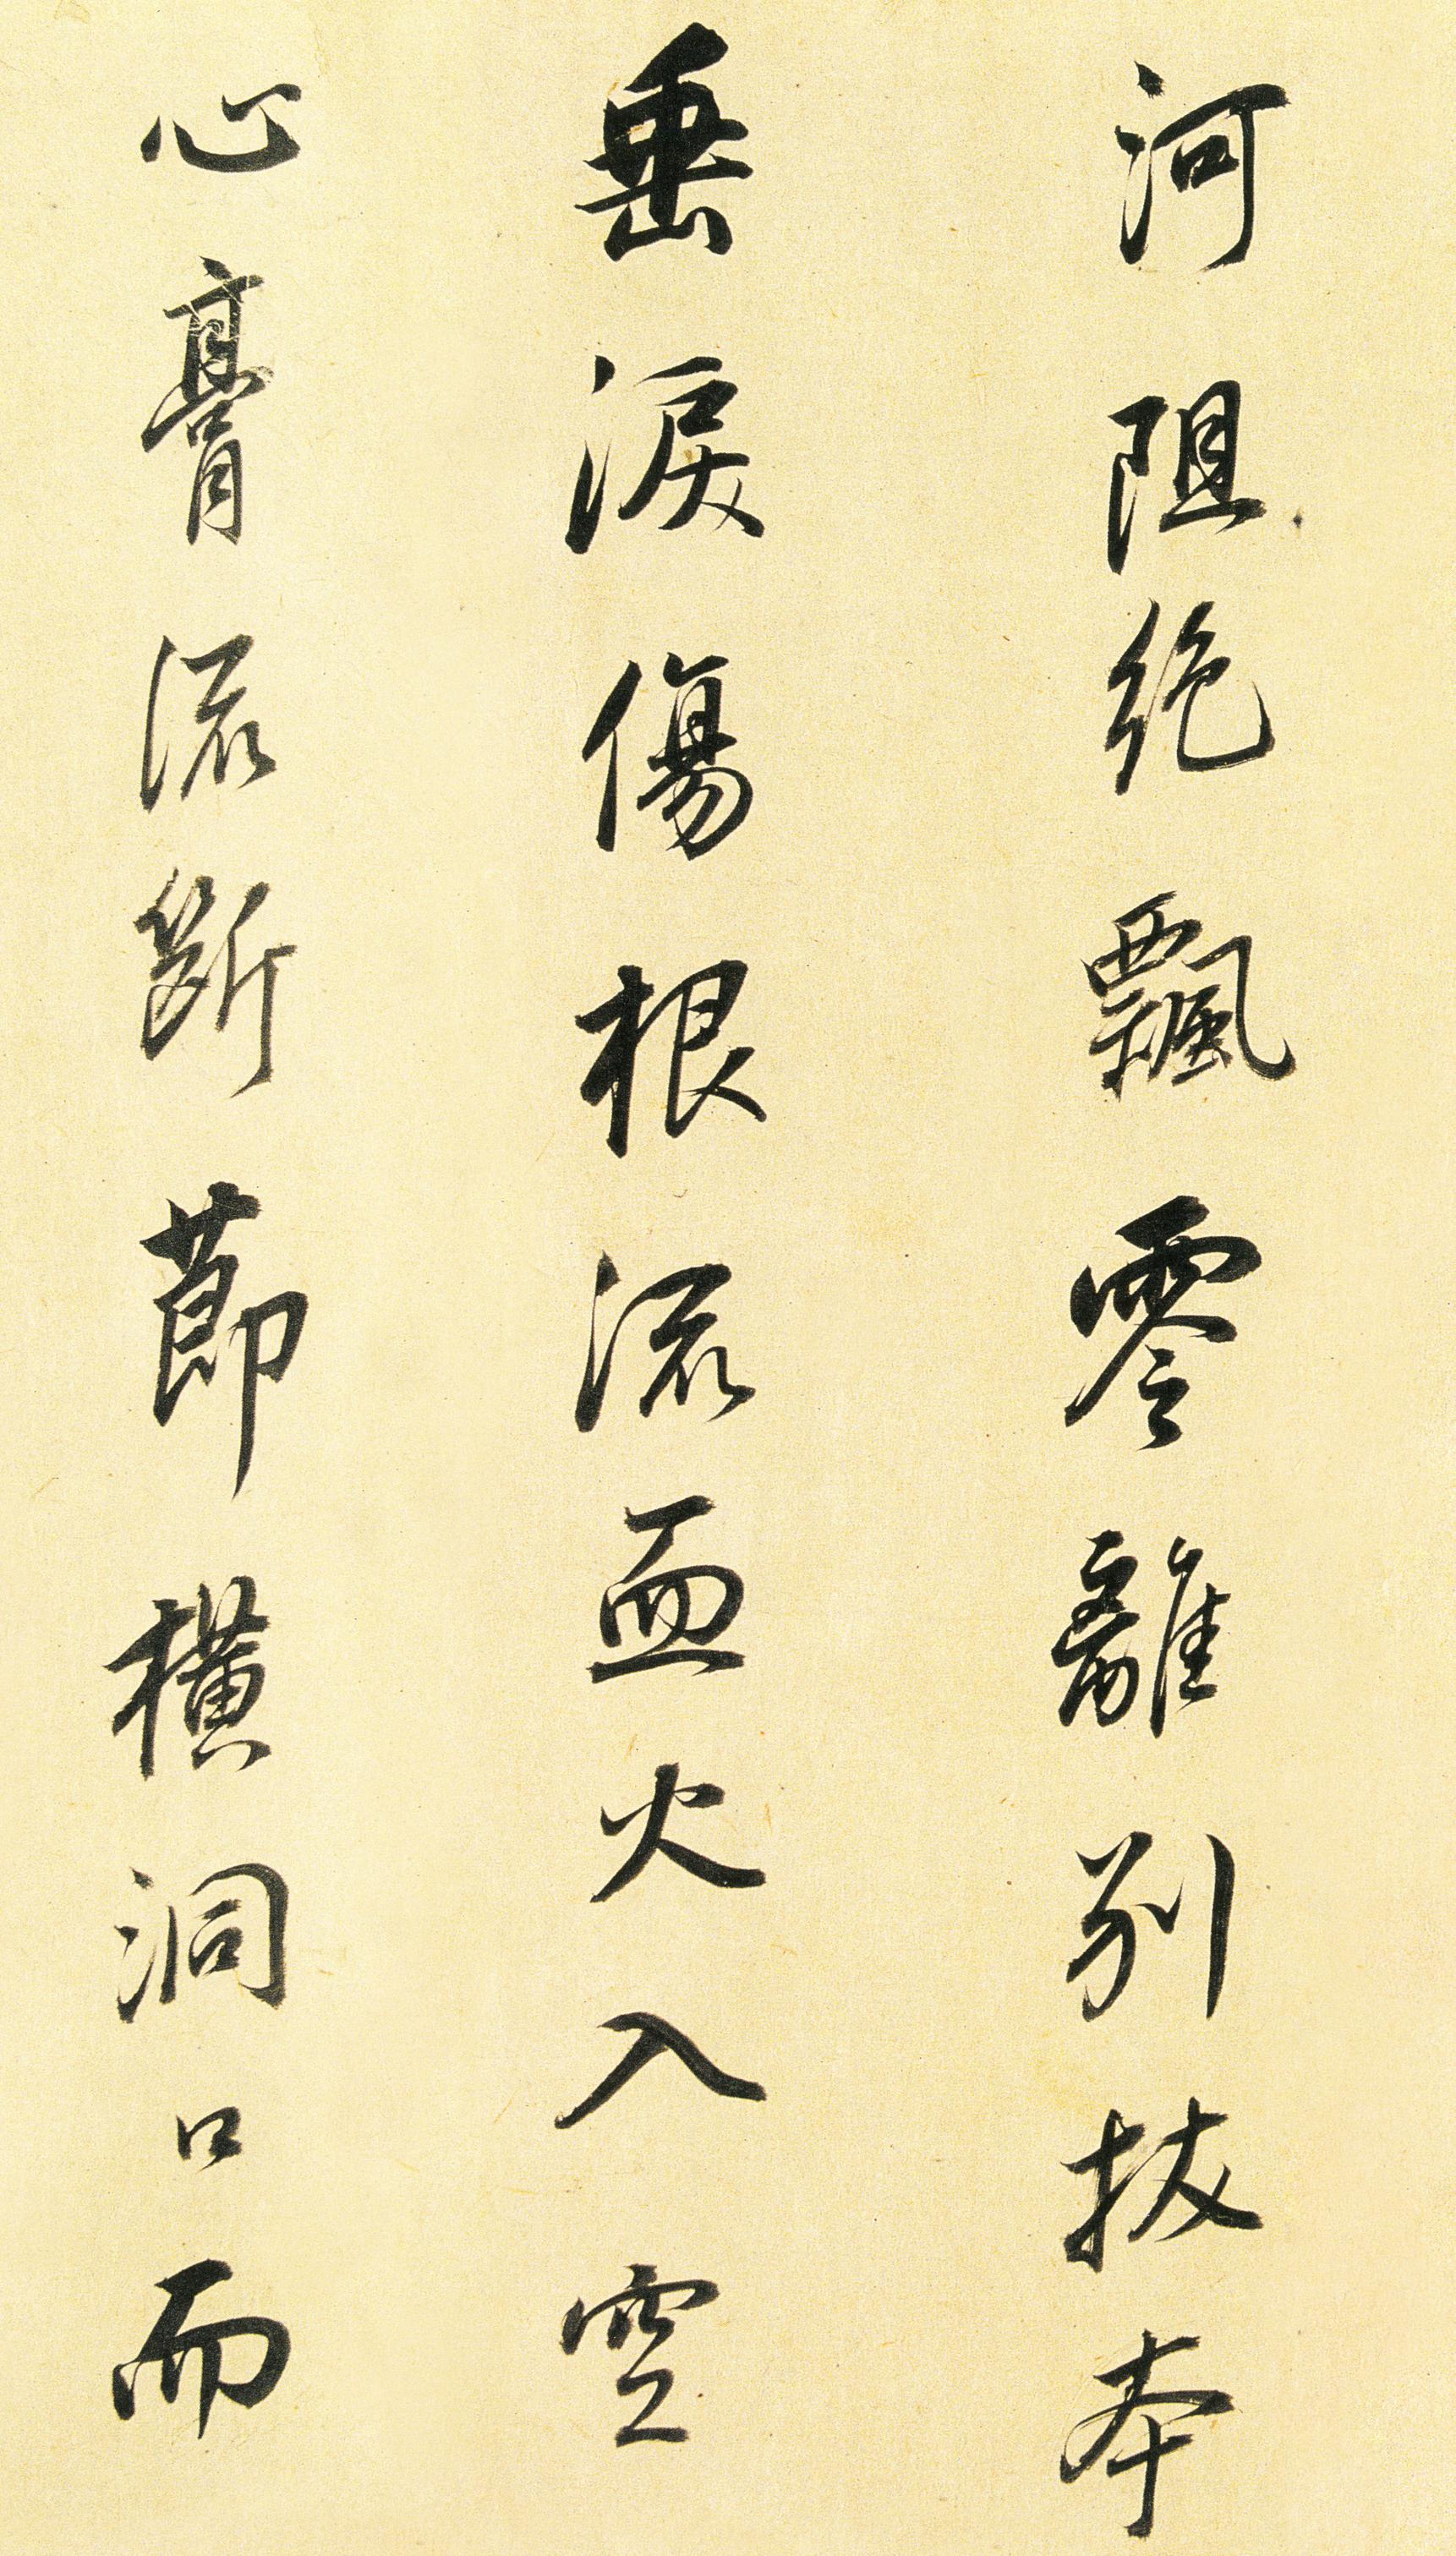 河阻絶飄零離別拔本
垂淚傷根流血火入空
心膏流斷節橫洞口而